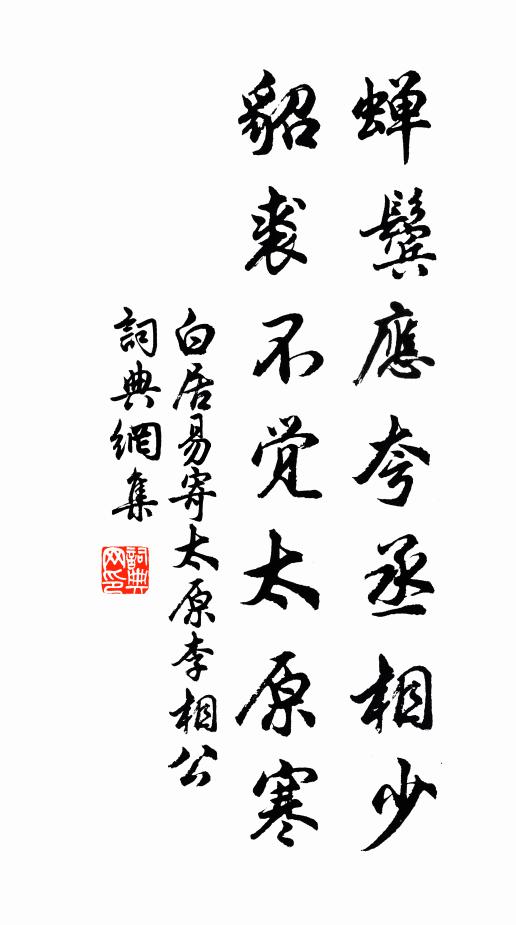 蝉鬓應夸丞相少
貂裘不觉太原寒
白居易寄太原李相公
詞典網集
詞典
网印